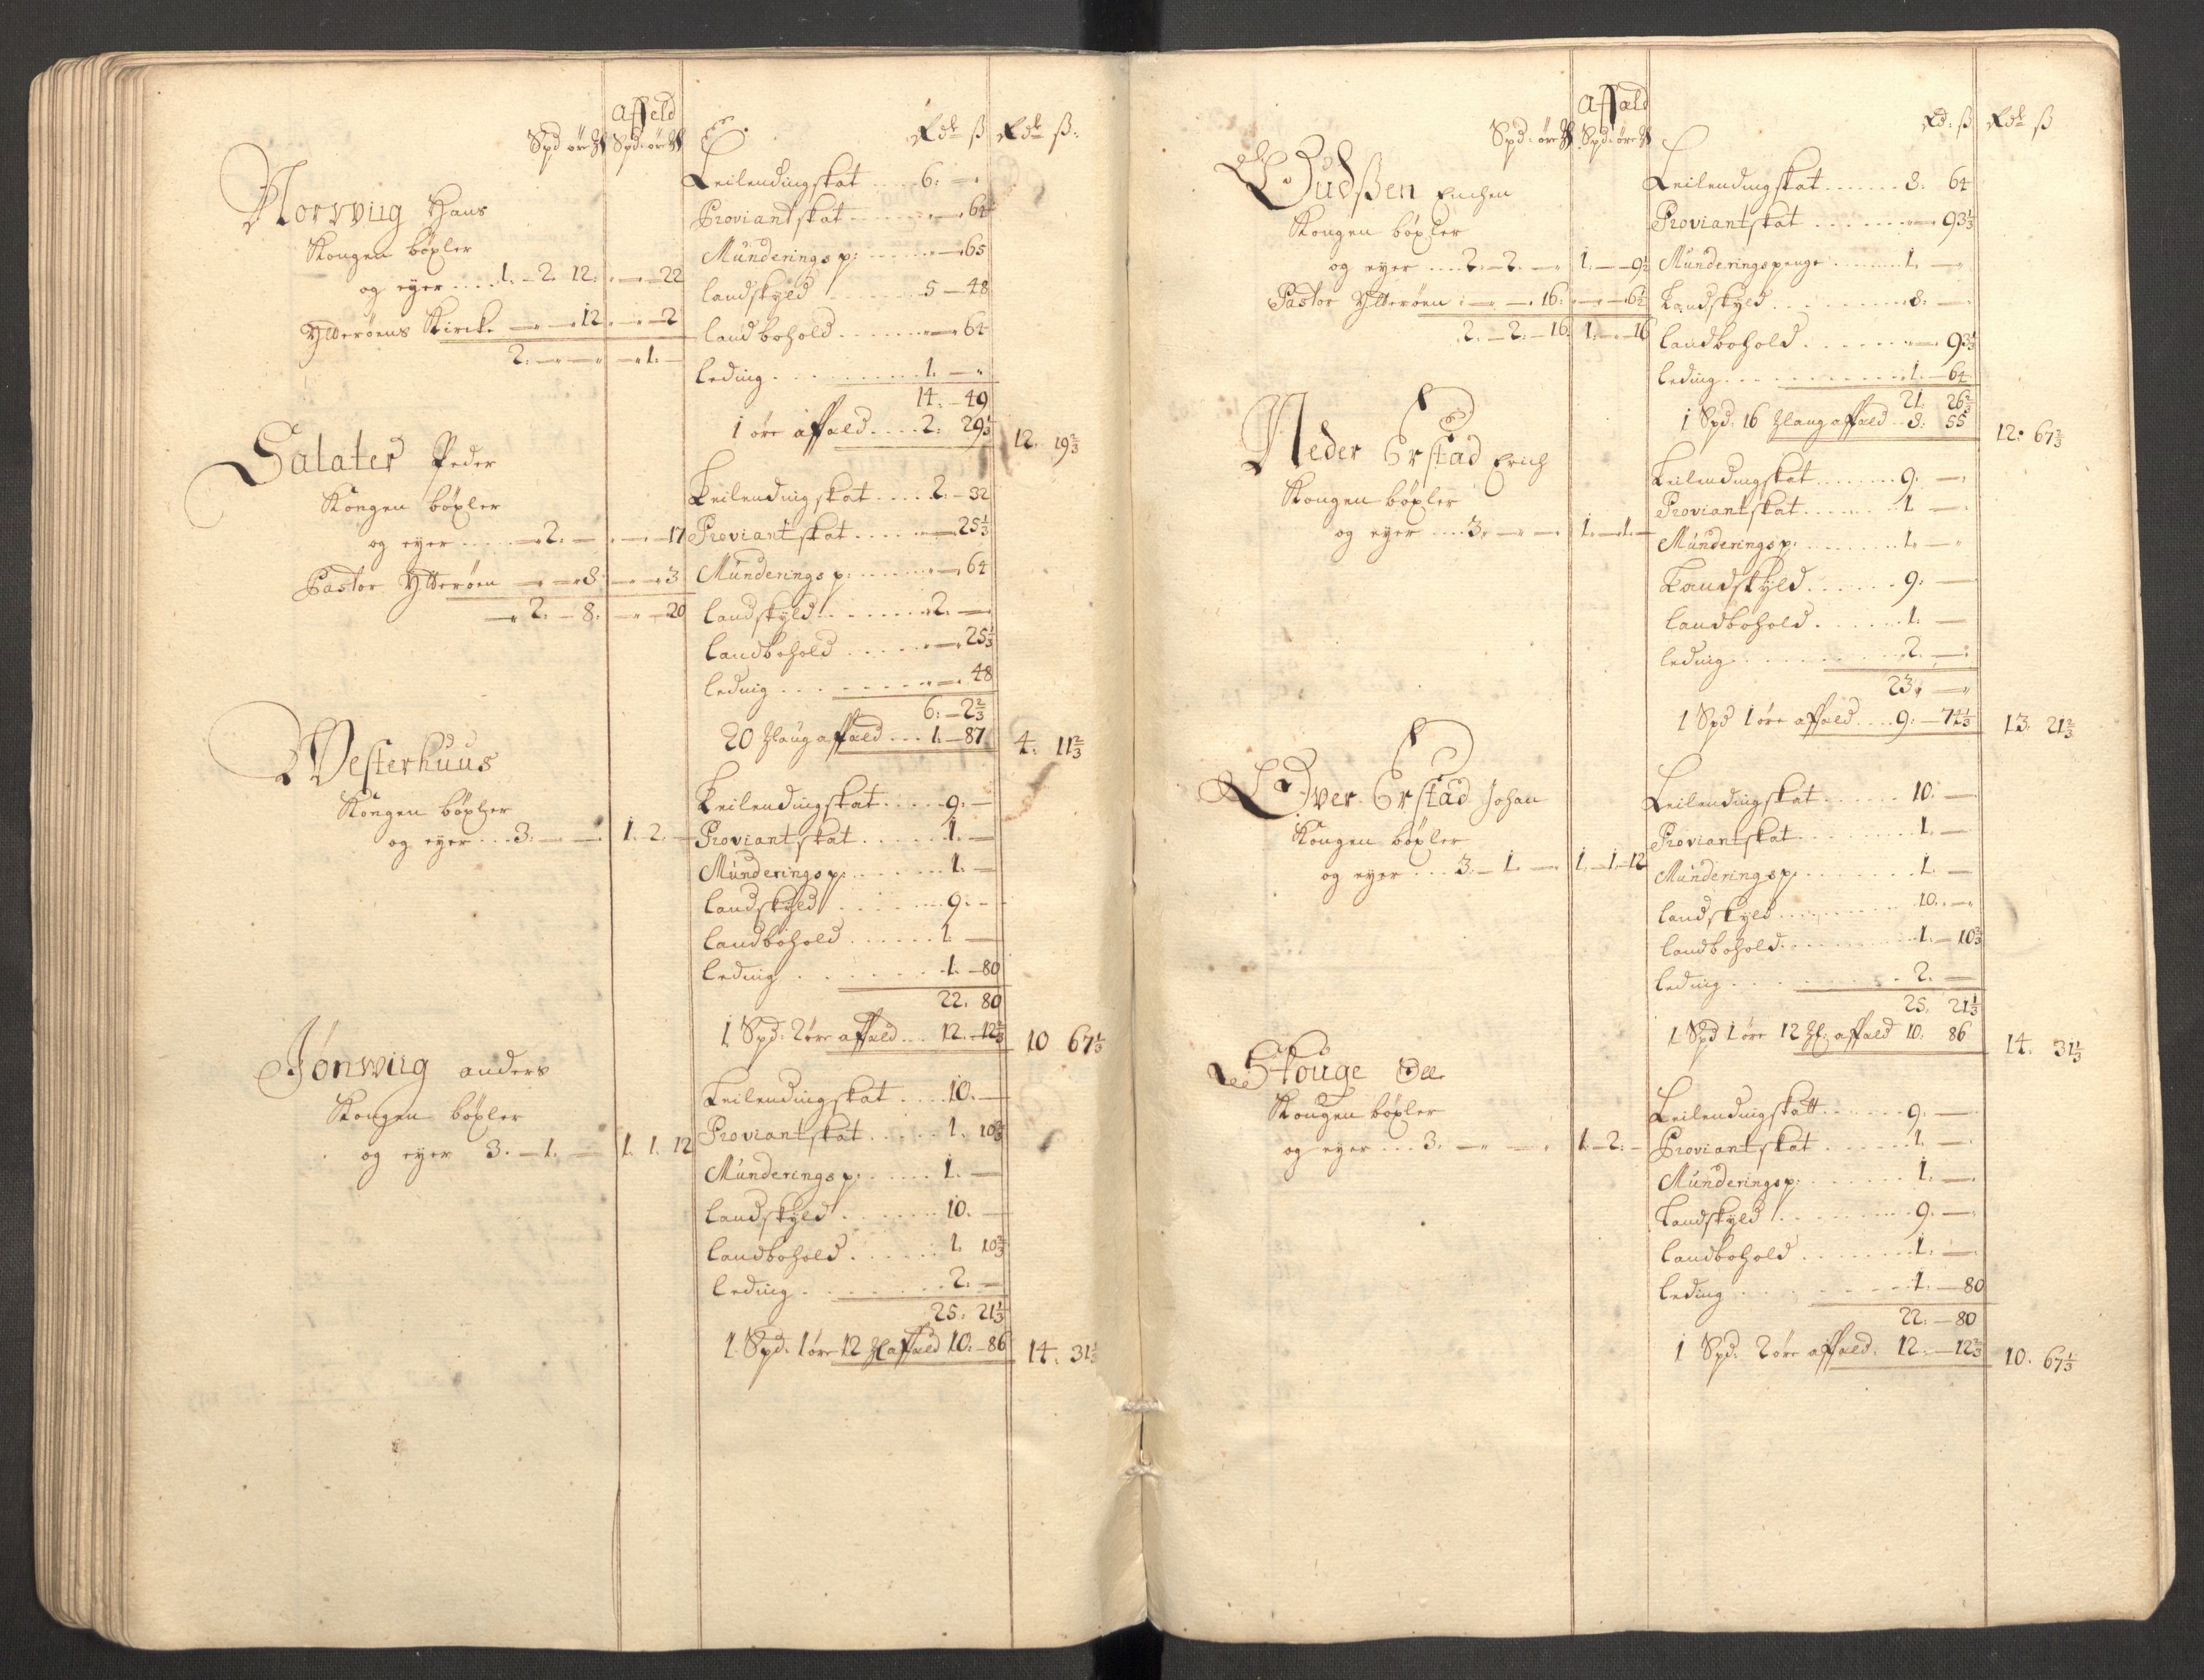 Affeld
Spd øre Spd: øre Er Rdr ß Rdr ß:
Norvviig Hans
Kongen bøxler
og eyer .... 1. - 2. 12: - 22
Ytterøens Kircke 12 2
2. 1.
Leilendingskat .... 6:
Proviantskat 64
Munderings p: 65
Landskyld 5 - 48
Landbohold 64
Leding 1.
14. - 49
1 øre affald .... 2. 29 1/3 12. 19 2/3
Salater Peder
Kongen bøxler
og eyer 2. 17
Pastor Ytterøen 8 3
2. - 8. 20
Leilendingskat .... 2. - 32
Proviantskat 25 1/3
Munderings p: 64
Landskyld 2.
Landbohold 25 1/3
Leding 48
6. - 2 2/3
20 affald ... 1. - 87 4. 11 2/3
Vesterhuus
Kongen bøxler
og eyer ... 3. 1. 2.
Leilendingskat .... 9.
Proviantskat 1.
Munderings p: 1.
Landskyld 9.
Landbohold 1.
Leding 1. - 80
22. 80
1 Spd: 2 øre affald ... 12. - 12 2/3 10 67 1/3
Jønwiig anders
Kongen bøxler
og eyer 3. - 1. 1. 1. 12
Leilendingskat .... 10.
Proviantskat 1. 10 2/3
Munderings p: 1.
Landskyld 10.
Landbohold 1. 10 2/3
Leding 2.
25. 21 1/3
1. Spd. 1 øre 12 affald 10. - 86 14. 31 1/3
Affald
Spd: øre Spd: øre Rd: ß Rdr ß
Gudßen Enchen
Kongen bøxler
og eyer .... 2. - 2. 1. - 9 1/2
Pastor Ytterøen 16. 6 1/2
2. - 2. - 16. 1. - 16
Leilendingskat 8. 64
Proviantskat 93 1/3
Munderingspenge 1.
Landskyld 8.
Landbohold 93 1/3
Leding 1. - 64
21. 26 2/3
1 Spd. 16 affald .. 8. 55 12. 67 2/3
Neder Erstad Erich
Kongen bøxler
og eyer .... 3. 1. 1.
Leilendingskat 9.
Proviantskat 1
Munderings p: 1.
Landskyld 9.
Landbohold 1.
Leding 2.
23.
1 Spd 1 øre affald .... 9. - 74 1/3 13. 21 2/3
Over Erstad Johan
Kongen bøxler
og eyer ... 3. - 1. 1. - 1. - 12
Leilendingskat 10.
Proviantskat 1.
Munderings p: 1.
Landskyld 10.
Landbohold 1. - 10 2/3
Leding 2.
25. 21 1/3
1 Spd 1 øre 12 affald 10. 86 14. 31 1/3
Stouge Ole
Kongen bøxler
og eyer ... 3. 1. - 2.
Leilendingskatt 9.
Proviantskat 1.
Munderings p: 1.
Landskyld 9.
Landbohold 1.
Leding 1. - 80
22. - 80
1 Spd: 2 øre affald. 12. - 12 2/3 10. 67 1/3